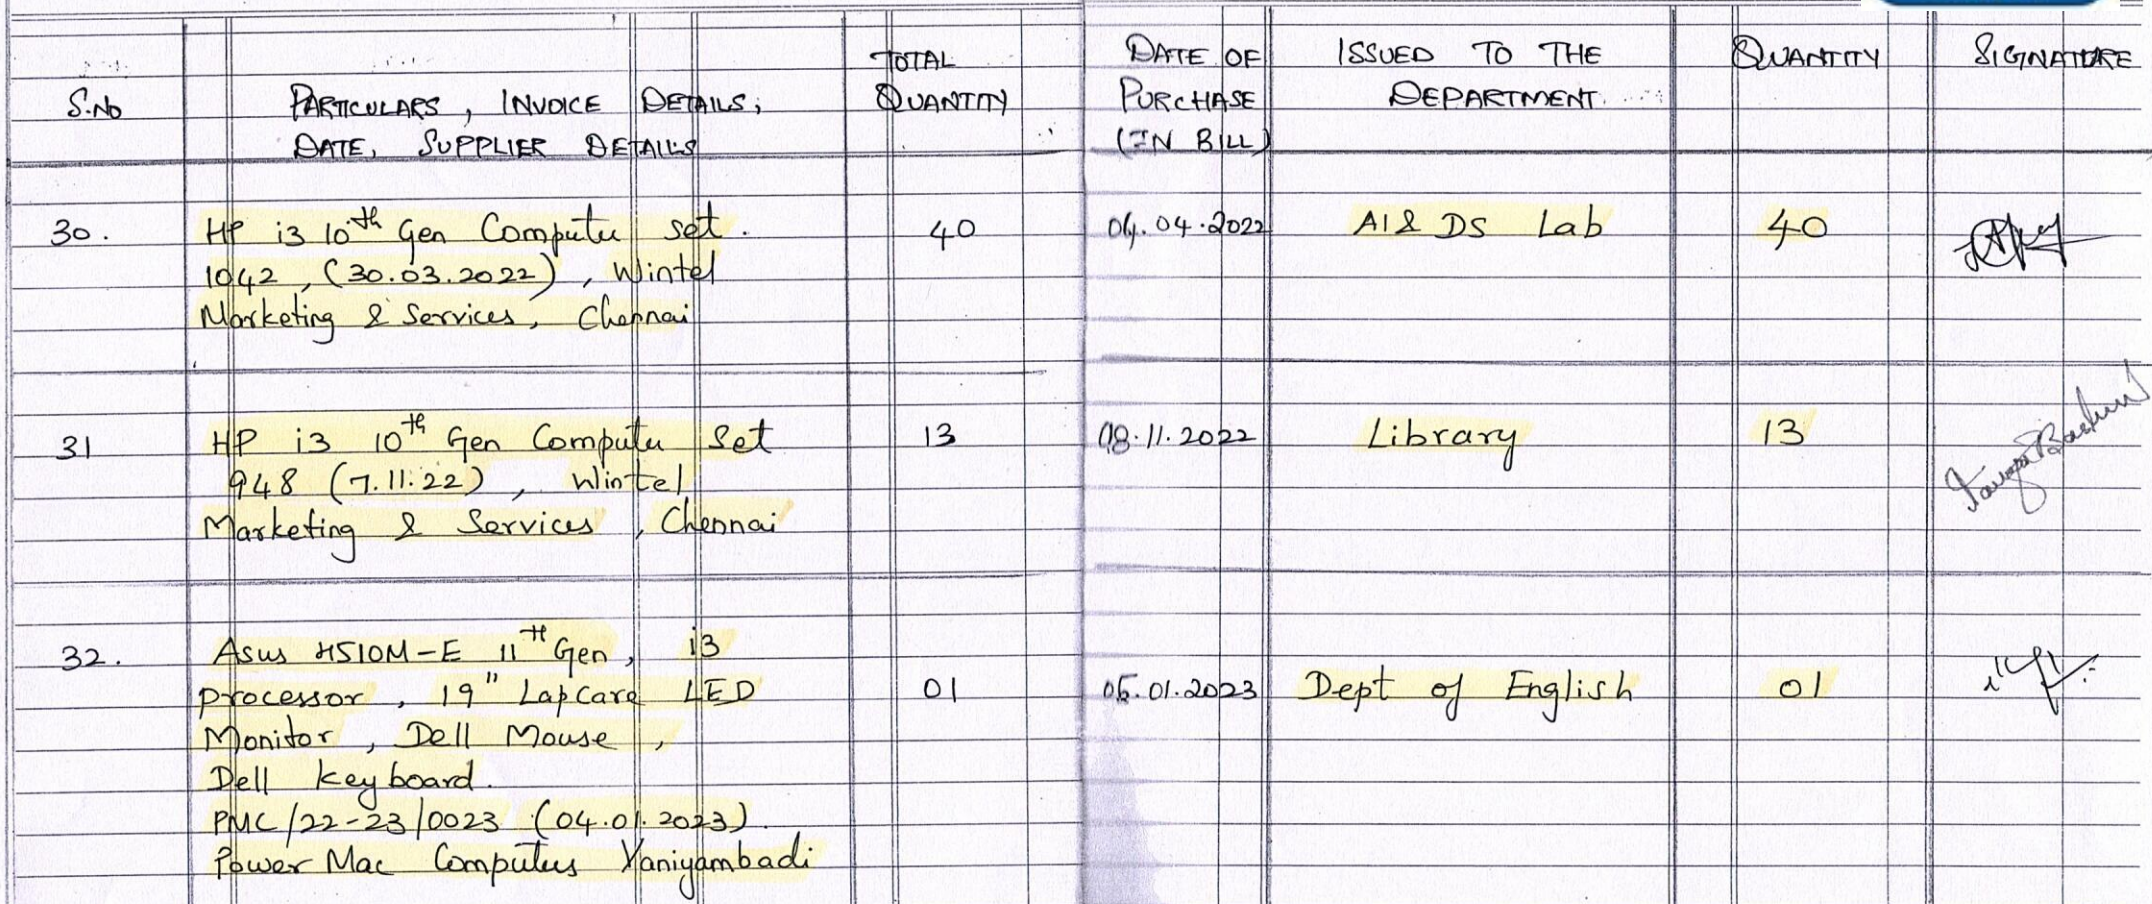 S.No
PARTICULARS, INVOICE DETAILS,
DATE, SUPPLIER DETAILS
TOTAL
QUANTITY
DATE OF
PURCHASE
(IN BILL)
ISSUED TO THE
DEPARTMENT
QUANTITY
SIGNATURE
30.
HP i3 10th Gen Computer set.
1042, (30.03.2022), Wintel
Marketing & Services, Chennai
40
04.04.2022
AI & DS Lab
40
31
HP i3 10th Gen Computer Set
948 (7.11.22), Wintel
Marketing & Services, Chennai
13
08.11.2022
Library
13
32.
Asus H510M-E 11th Gen, i3
processor, 19" Lapcare LED
Monitor, Dell Mouse,
Dell keyboard.
PMC/22-23/0023 (04.01.2023).
Power Mac Computers Vaniyambadi
01
.01.2023
Dept of English
01